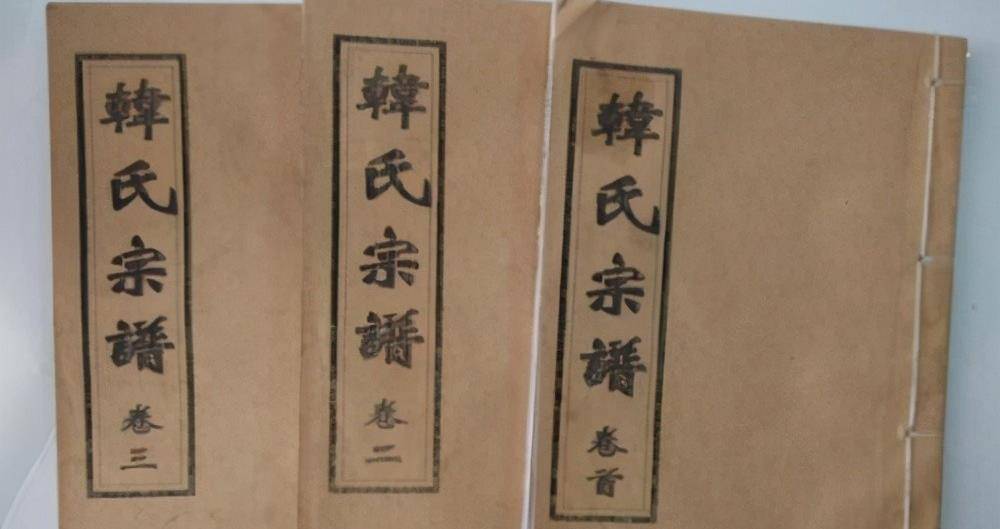 韓氏宗譜 卷三
韓氏宗譜 卷二
韓氏宗譜 卷首